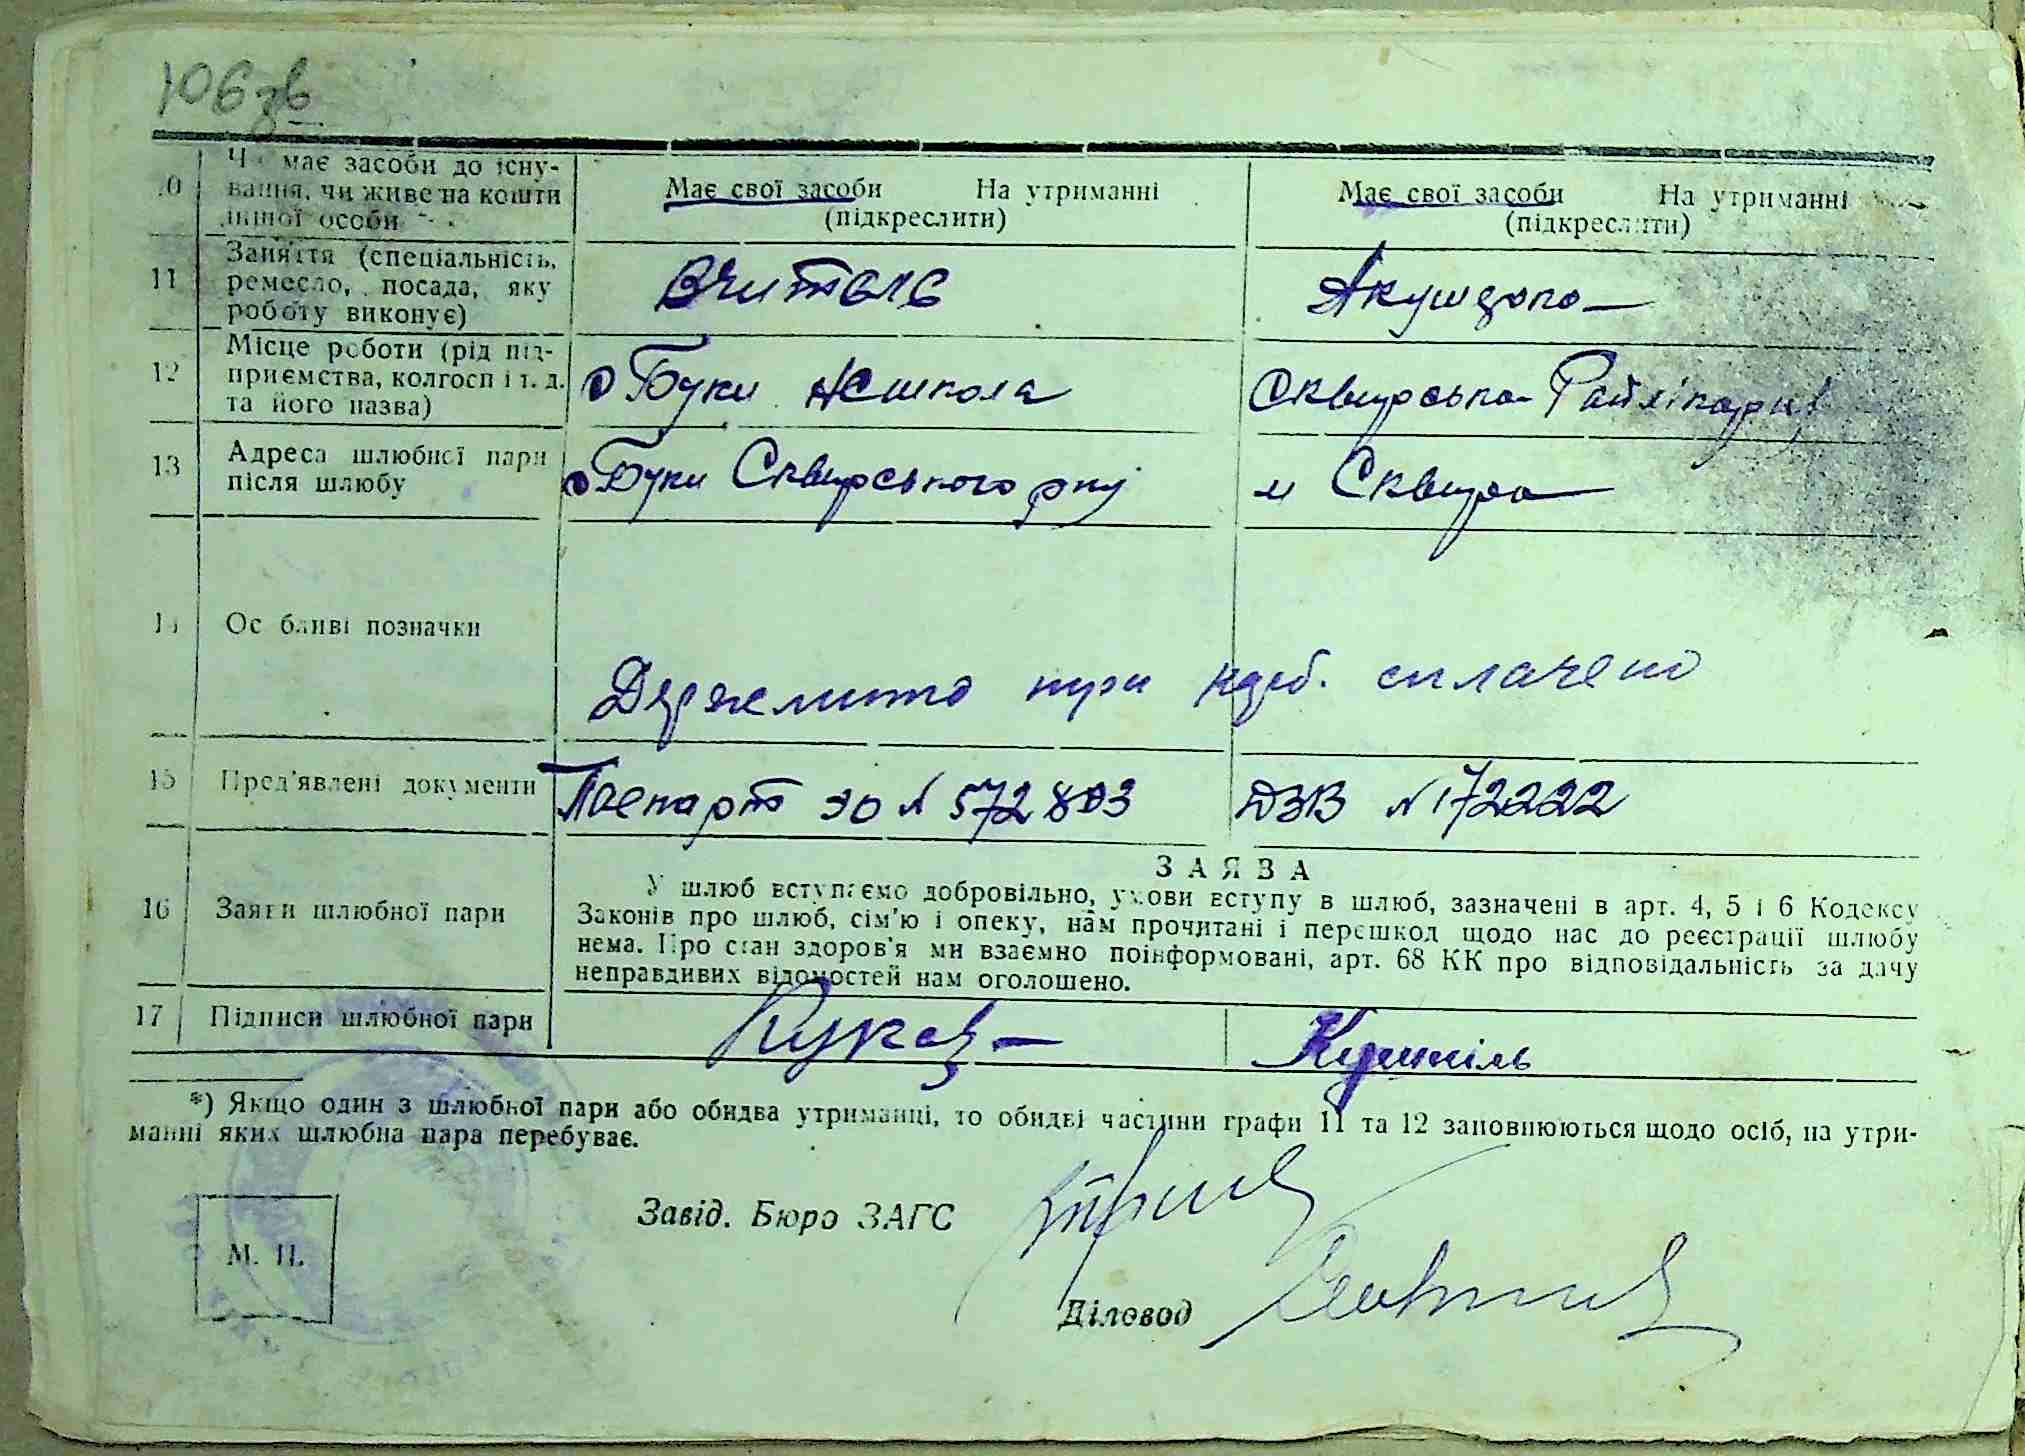 106 зв
10 Чи має засоби до існу-
вання, чи живе на кошти
іншої особи
Має свої засоби На утриманні
(підкреслити)
Має свої засоби На утриманні
(підкреслити)
11 Заняття (спеціальність,
ремесло, посада, яку
роботу виконує)
Вчитель
Акушерка
12 Місце роботи (рід під-
приємства, колгосп і т. д.
та його назва)
с Буки НСшкола
Сквирська Райлікарн
13 Адреса шлюбної пари
після шлюбу
с Буки Сквирського р-ну
м Сквира
14 Особливі позначки
Держмито при карб. сплачено
15 Пред'явлені документи
Паспорт ЭО № 572803
ДЗВ № 172222
16 Заяви шлюбної пари
ЗАЯВА
У шлюб вступаємо добровільно, умови вступу в шлюб, зазначені в арт. 4, 5 і 6 Кодексу
Законів про шлюб, сім'ю і опеку, нам прочитані і перешкод щодо нас до реєстрації шлюбу
нема. Про стан здоров'я ми взаємно поінформовані, арт. 68 КК про відповідальність за дачу
неправдивих відомостей нам оголошено.
17 Підписи шлюбної пари
*) Якщо один з шлюбної пари або обидва утриманці, то обидві частини графи 11 та 12 заповнюються щодо осіб, на утри-
манні яких шлюбна пара перебуває.
Завід. Бюро ЗАГС
М. П.
Діловод